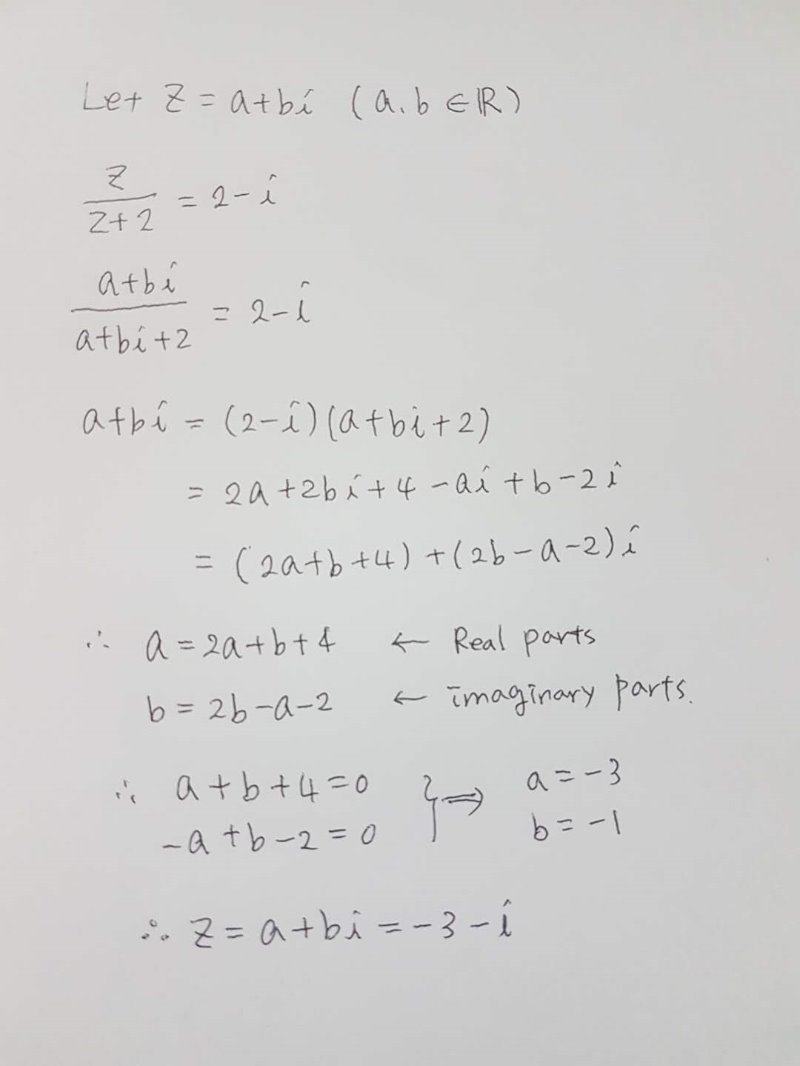 Let z = a+bi (a.b ∈ ℝ)
z/(z+2) = 2-i
(a+bi)/(a+bi+2) = 2-i
a+bi = (2-i)(a+bi+2)
= 2a+2bi+4-ai+b-2i
= (2a+b+4)+(2b-a-2)i
∴ a=2a+b+4 ← Real parts
b=2b-a-2 ← imaginary parts.
∴ a+b+4=0 } ⇒ a=-3
-a+b-2=0 b=-1
∴ z=a+bi=-3-i